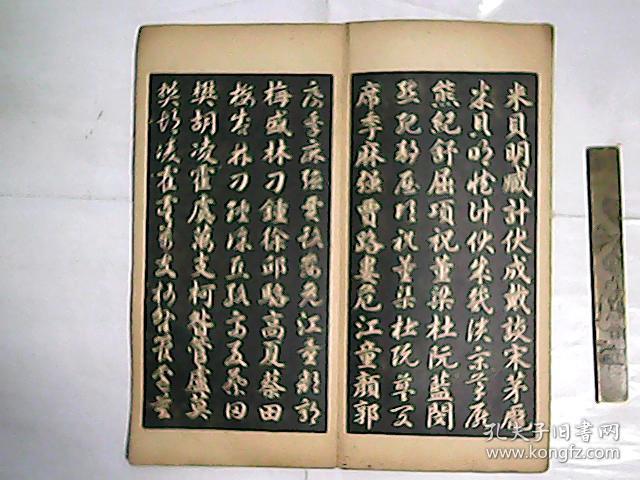 米貝明臧計伏成戴談宋茅龐
米貝明臧計伏成戴談宋茅龐
熊紀舒屈項祝董梁杜阮藍閔
熊紀舒屈項祝董梁杜阮藍閔
席季麻強賈路婁危江童顏郭
席季麻強賈路婁危江童顏郭
梅盛林刁鍾徐邱駱高夏蔡田
梅盛林刁鍾徐邱駱高夏蔡田
樊胡凌霍虞萬支柯昝管盧莫
樊胡凌霍虞萬支柯昝管盧莫
孔夫子旧书网
www.kongfz.com